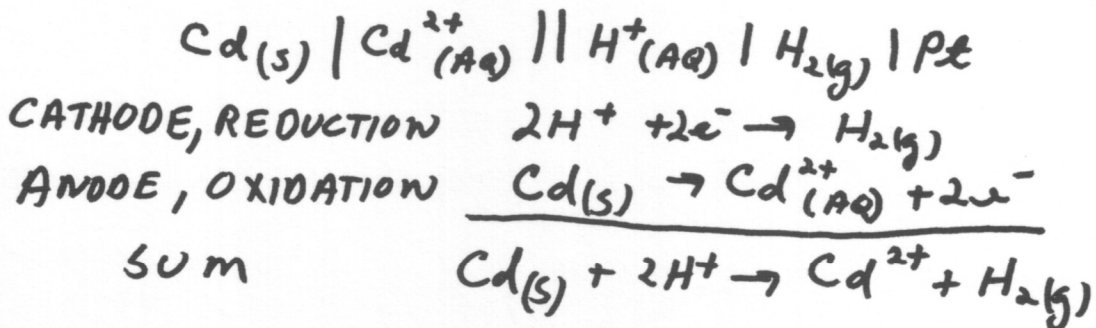 Cd(s) | Cd²⁺(AQ) || H⁺(AQ) | H₂(g) | Pt
CATHODE, REDUCTION 2H⁺ + 2e⁻ → H₂(g)
ANODE, OXIDATION Cd(s) → Cd²⁺(AQ) + 2e⁻
SUM Cd(s) + 2H⁺ → Cd²⁺ + H₂(g)